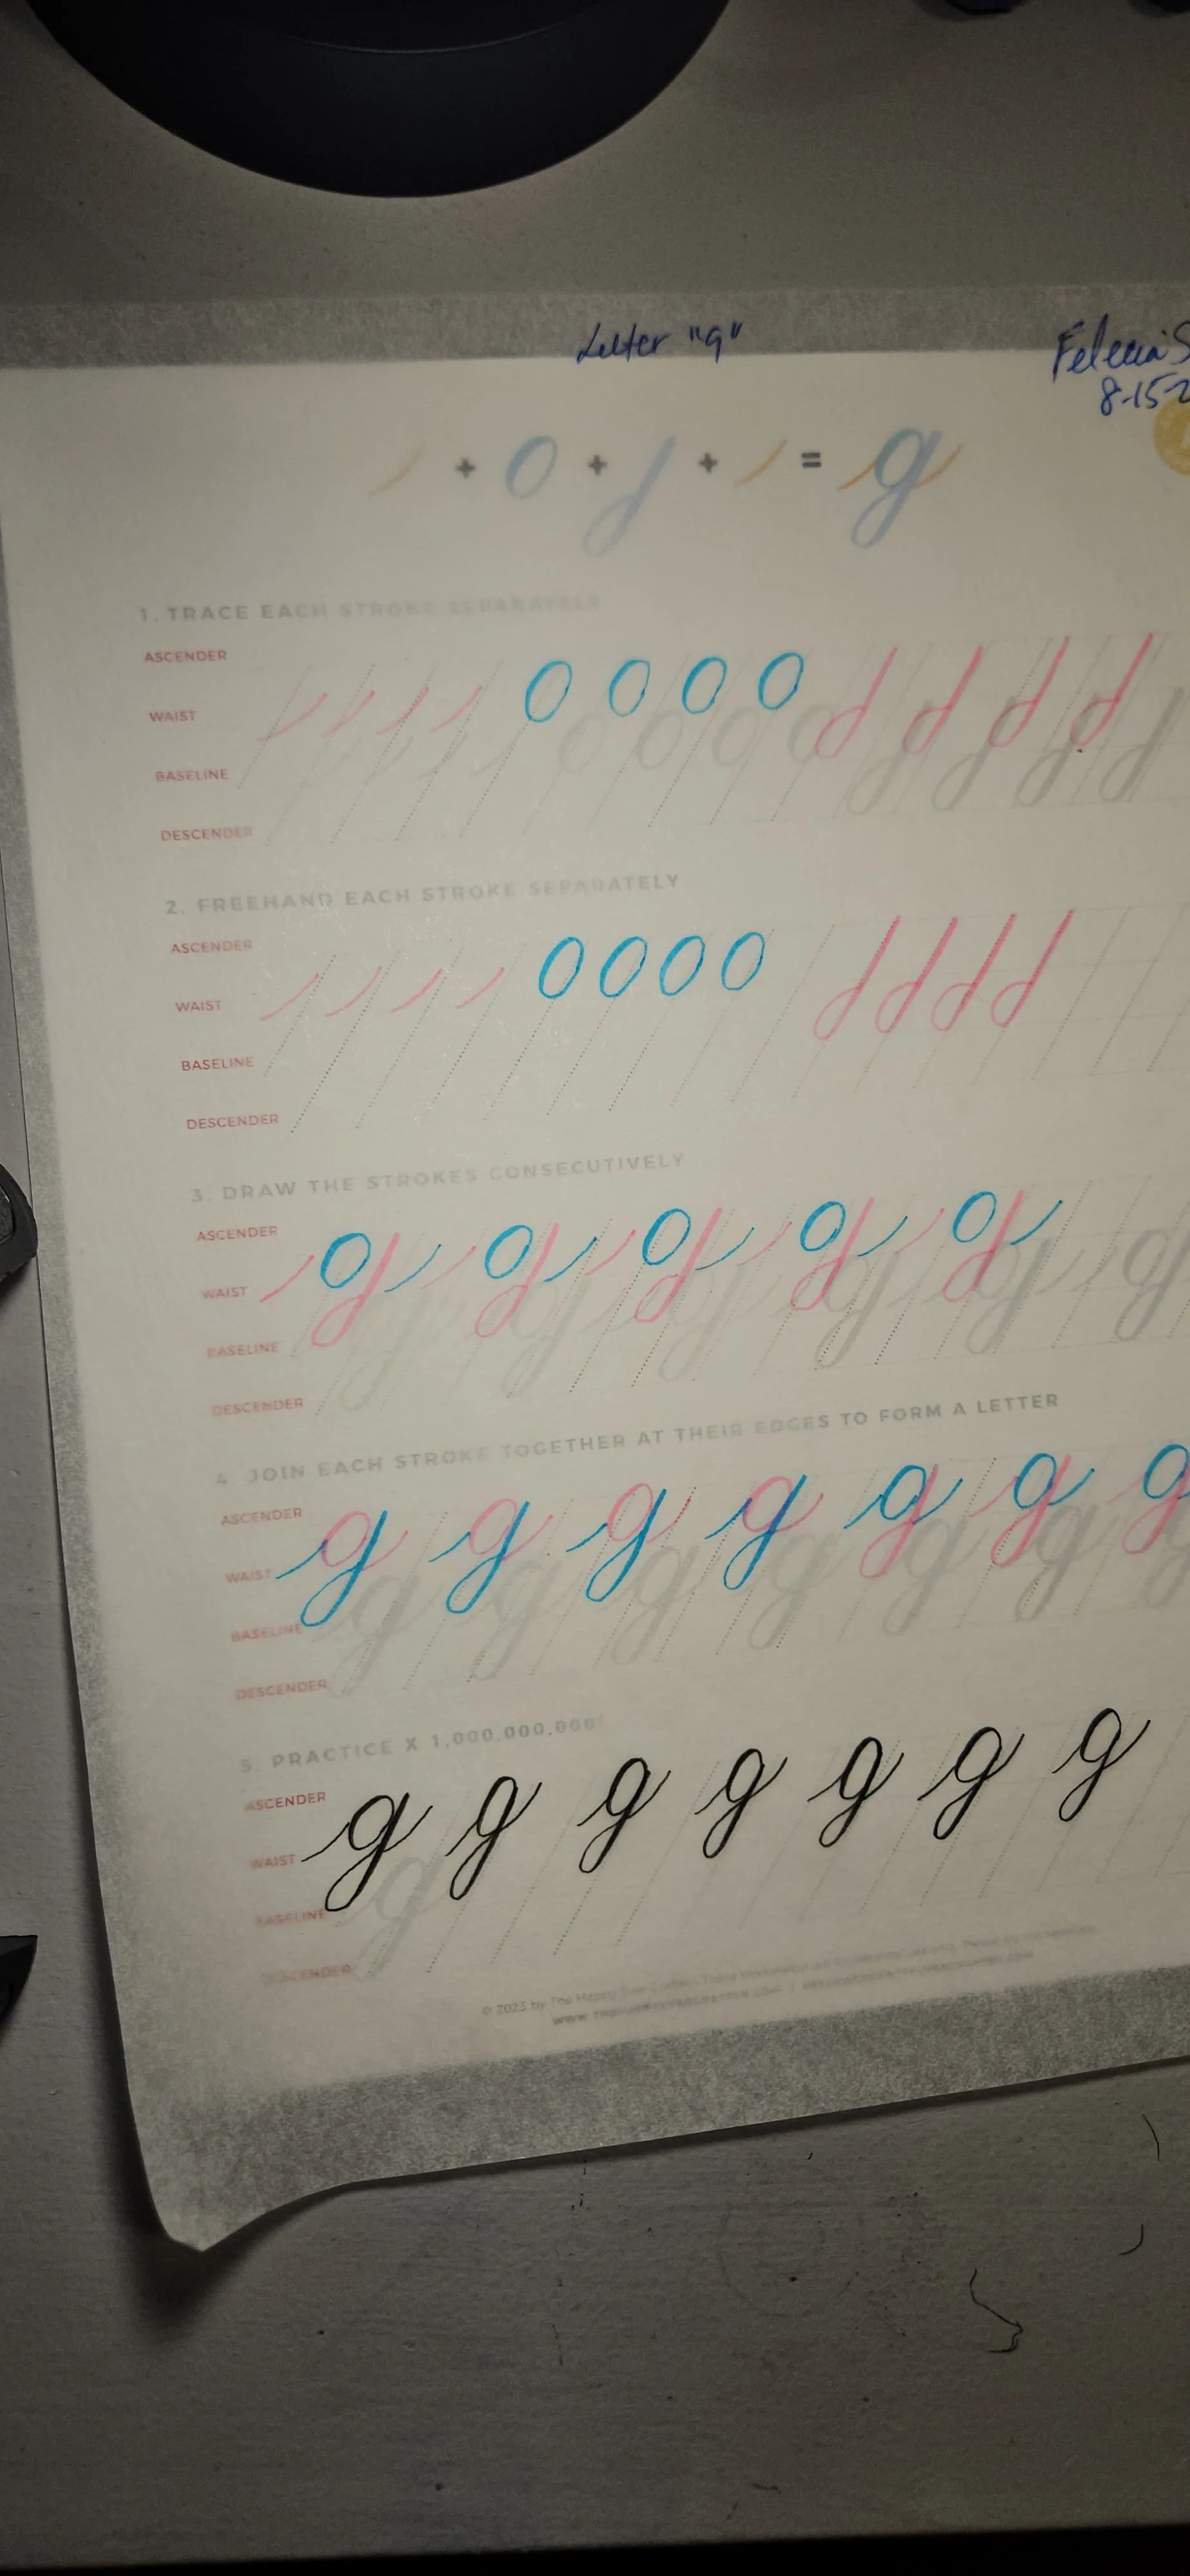 Letter "g"
8-15-2
+ O + + = g
1. TRACE EACH STROKE SEPARATELY
ASCENDER
WAIST
BASELINE
DESCENDER
O O O O
2. FREEHAND EACH STROKE SEPARATELY
ASCENDER
WAIST
BASELINE
DESCENDER
O O O O
3. DRAW THE STROKES CONSECUTIVELY
ASCENDER
WAIST
BASELINE
DESCENDER
g g g g g
4. JOIN EACH STROKE TOGETHER AT THEIR EDGES TO FORM A LETTER
ASCENDER
WAIST
BASELINE
DESCENDER
g g g g g g g
5. PRACTICE X 1,000,000,000!
ASCENDER
WAIST
BASELINE
DESCENDER
g g g g g g g
© 2023 by The Happy Ever Crafter